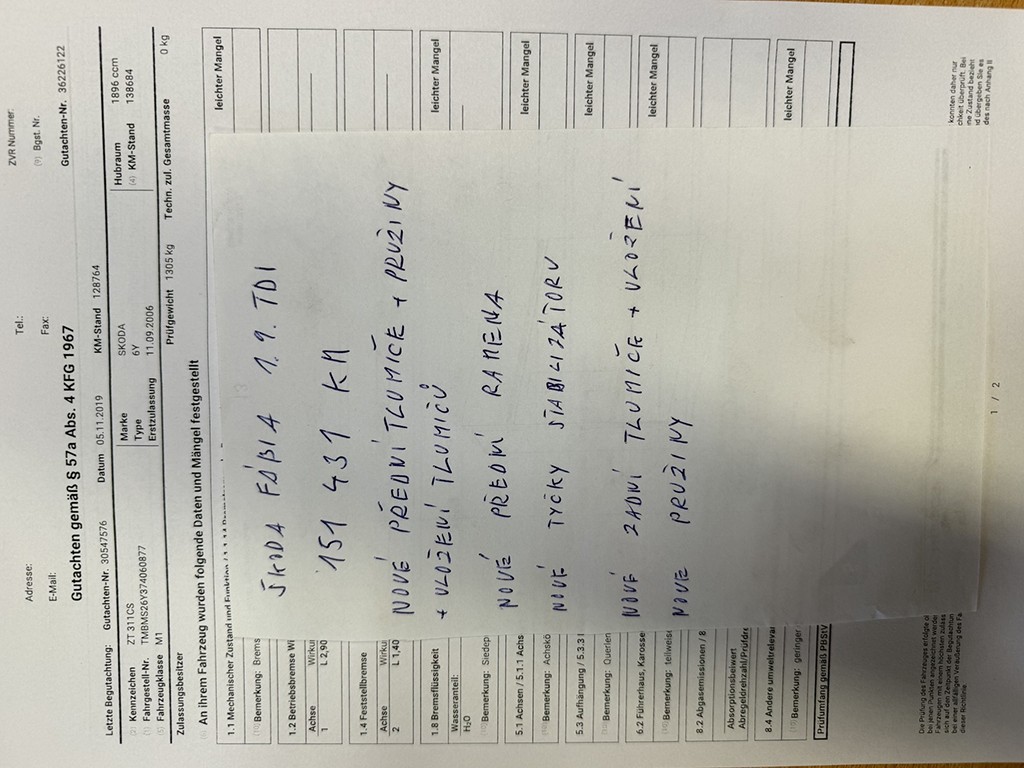 ZVR Nummer:
Tel.:
Adresse:
(9) Bgst. Nr.
Fax:
E-Mail:
Gutachten gemäß § 57a Abs. 4 KFG 1967
Gutachten-Nr. 36226122
Letzte Begutachtung: Gutachten-Nr. 30547576 Datum 05.11.2019 KM-Stand 128764
(2) Kennzeichen ZT 311CS Marke SKODA Hubraum 1896 ccm
(1) Fahrgestell-Nr. TMBMS26Y374060877 Type 6Y (4) KM-Stand 138684
(5) Fahrzeugklasse M1 Erstzulassung 11.09.2006
Zulassungsbesitzer Prüfgewicht 1305 kg Techn. zul. Gesamtmasse 0 kg
An ihrem Fahrzeug wurden folgende Daten und Mängel festgestellt
1.1 Mechanischer Zustand und Funktion leichter Mangel
Bemerkung: Brems
1.2 Betriebsbremse Wi
Achse Wirku
1 L 2,90
1.4 Feststellbremse
Achse Wirku
2 L 1,40
1.8 Bremsflüssigkeit leichter Mangel
Wasseranteil:
H₂O
Bemerkung: Siedep
5.1 Achsen / 5.1.1 Achs leichter Mangel
Bemerkung: Achskö
5.3 Aufhängung / 5.3.3 leichter Mangel
Bemerkung: Querlen
6.2 Führerhaus, Karosse leichter Mangel
Bemerkung: teilweise
8.2 Abgasemissionen / 8
Absorptionsbeiwert
Abregeldrehzahl/Prüfdre
8.4 Andere umweltrelevan leichter Mangel
Bemerkung: geringer
Prüfumfang gemäß PBStV
ŠKODA FÁBIA 1.9. TDI
151 431 KM
NOVÉ PŘEDNÍ TLUMIČE + PRUŽINY
+ ULOŽENÍ TLUMIČŮ
NOVÉ PŘEDNÍ RAMENA
NOVÉ TYČKY STABILIZÁTORU
NOVÉ ZADNÍ TLUMIČE + ULOŽENÍ
NOVÉ PRUŽINY
Die Prüfung des Fahrzeuges erfolgte
konnten daher nur
chkeit überprüft. Bei
ne Zustand bezieht
d übergeben Sie es
des nach Anhang II
dieser Richtlinie
1 / 2